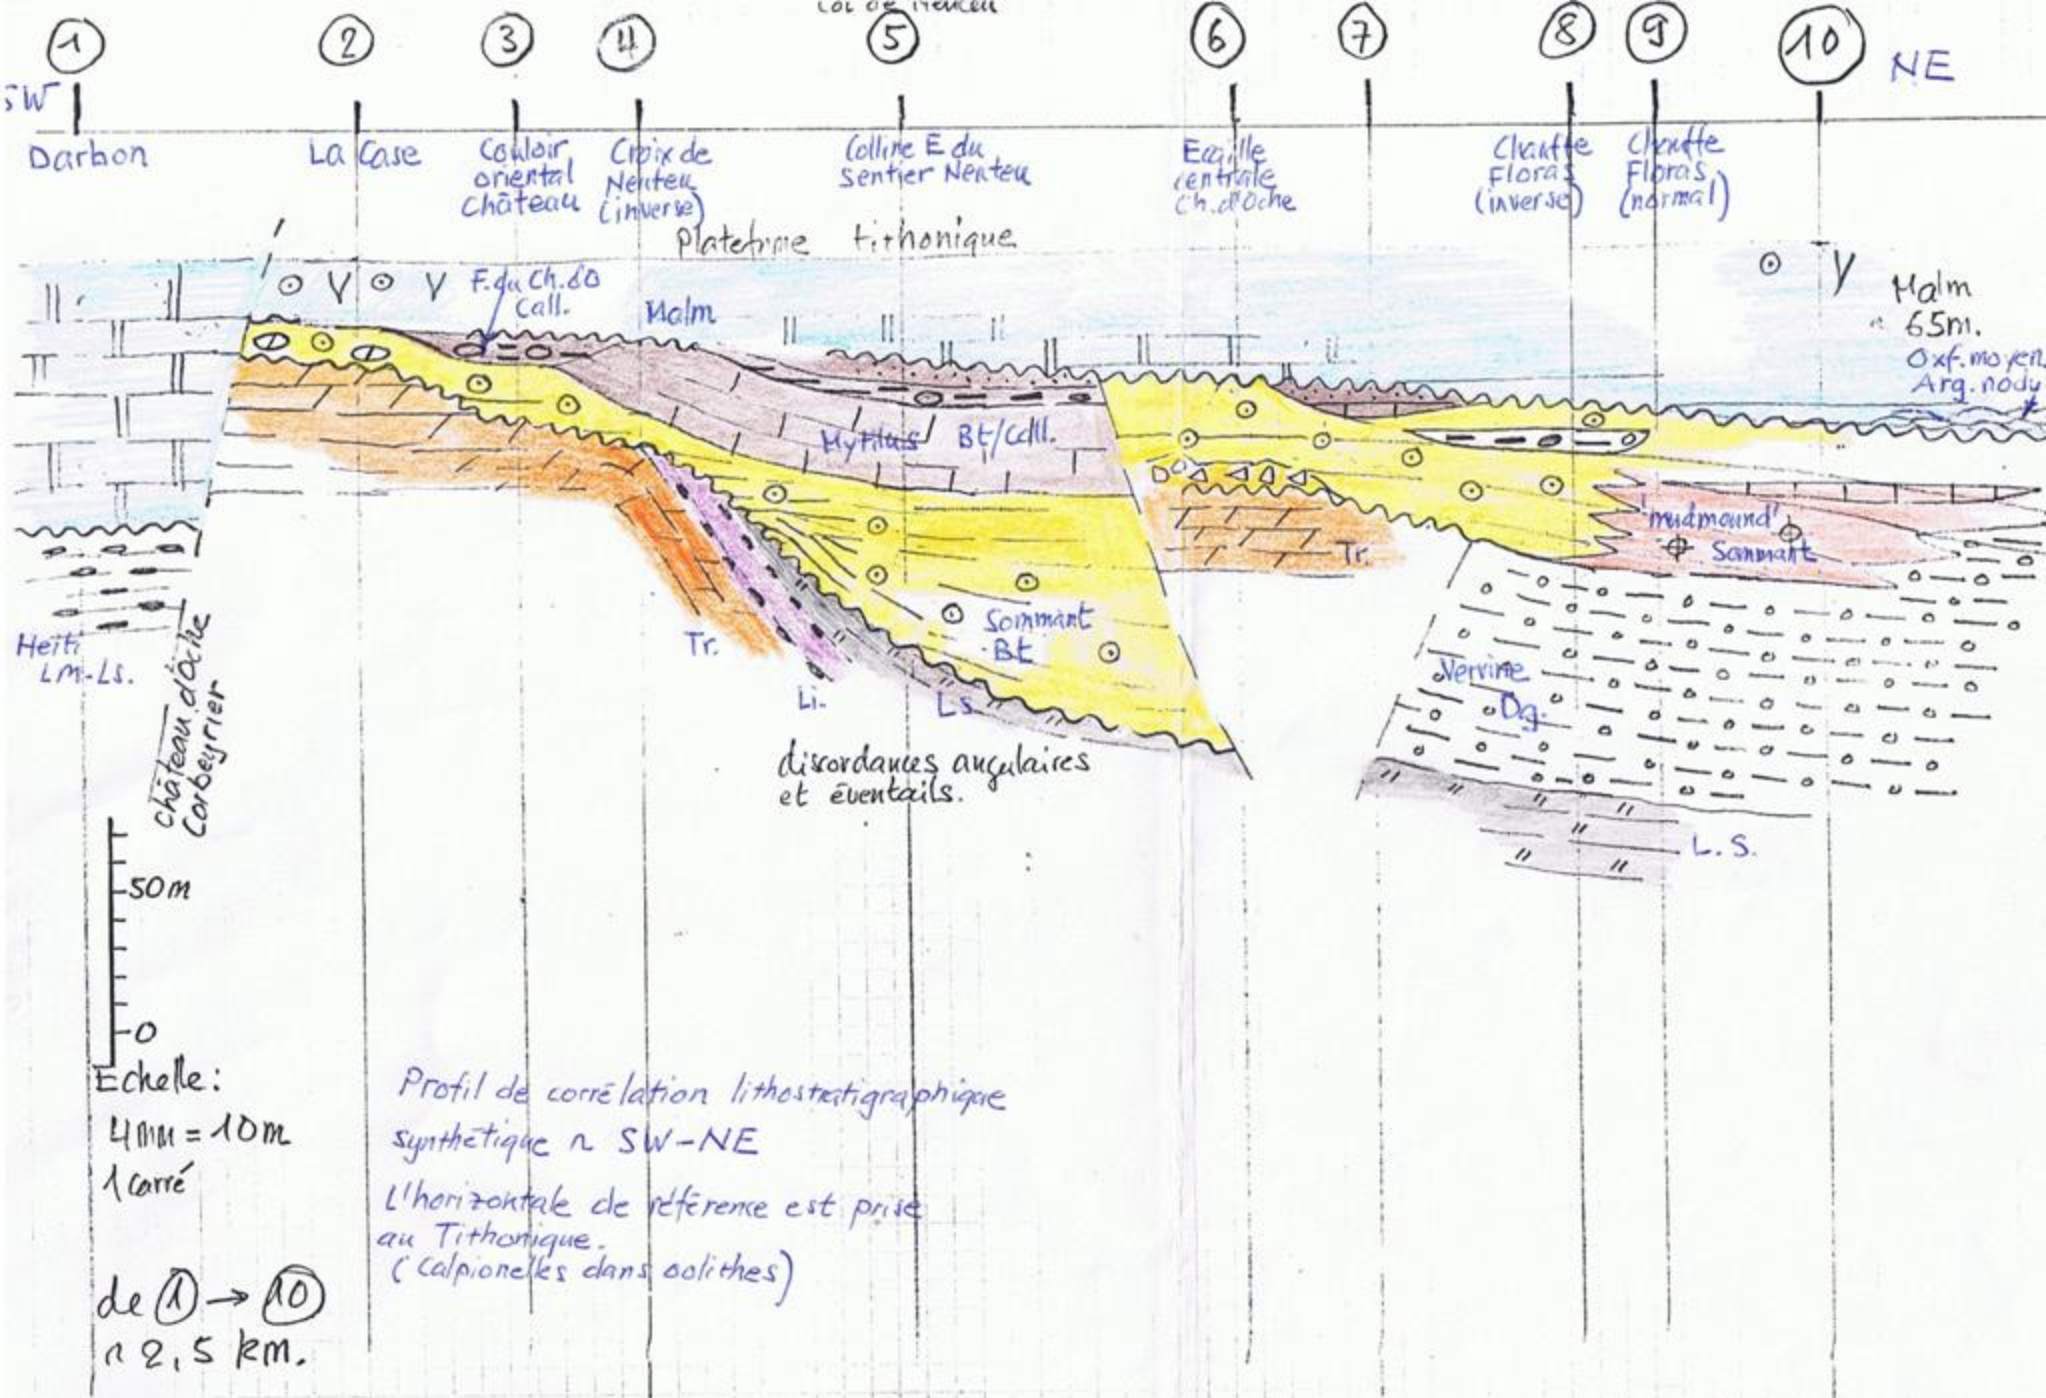 1 2 3 4 5 6 7 8 9 10 NE
SW
Darbon
La Case
Couloir
oriental
Château
Croix de
Neuteu
(inverse)
Colline E du
sentier Neuteu
Ecaille
centrale
Ch. d'Oche
Chauffe
Floras
(inverse)
Chauffe
Floras
(normal)
Plateforme tithonique
F. du Ch. dO
Call.
Malm
Malm
65m.
Oxf. moyen
Arg. nodu
Mytilus Bt/Call.
'mudmound'
Sommant
Tr.
Sommant
Bt
Heiti
LM-Ls.
château d'Oche
Corbeyrier
Tr.
Li.
Ls
Vervine
Dg.
discordances angulaires
et éventails.
L.S.
50m
0
Echelle:
4mm = 10m
1 carré
Profil de corrélation lithostratigraphique
synthétique ~ SW-NE
L'horizontale de référence est prise
au Tithonique.
(Calpionelles dans oolithes)
de 1 → 10
~ 2,5 km.